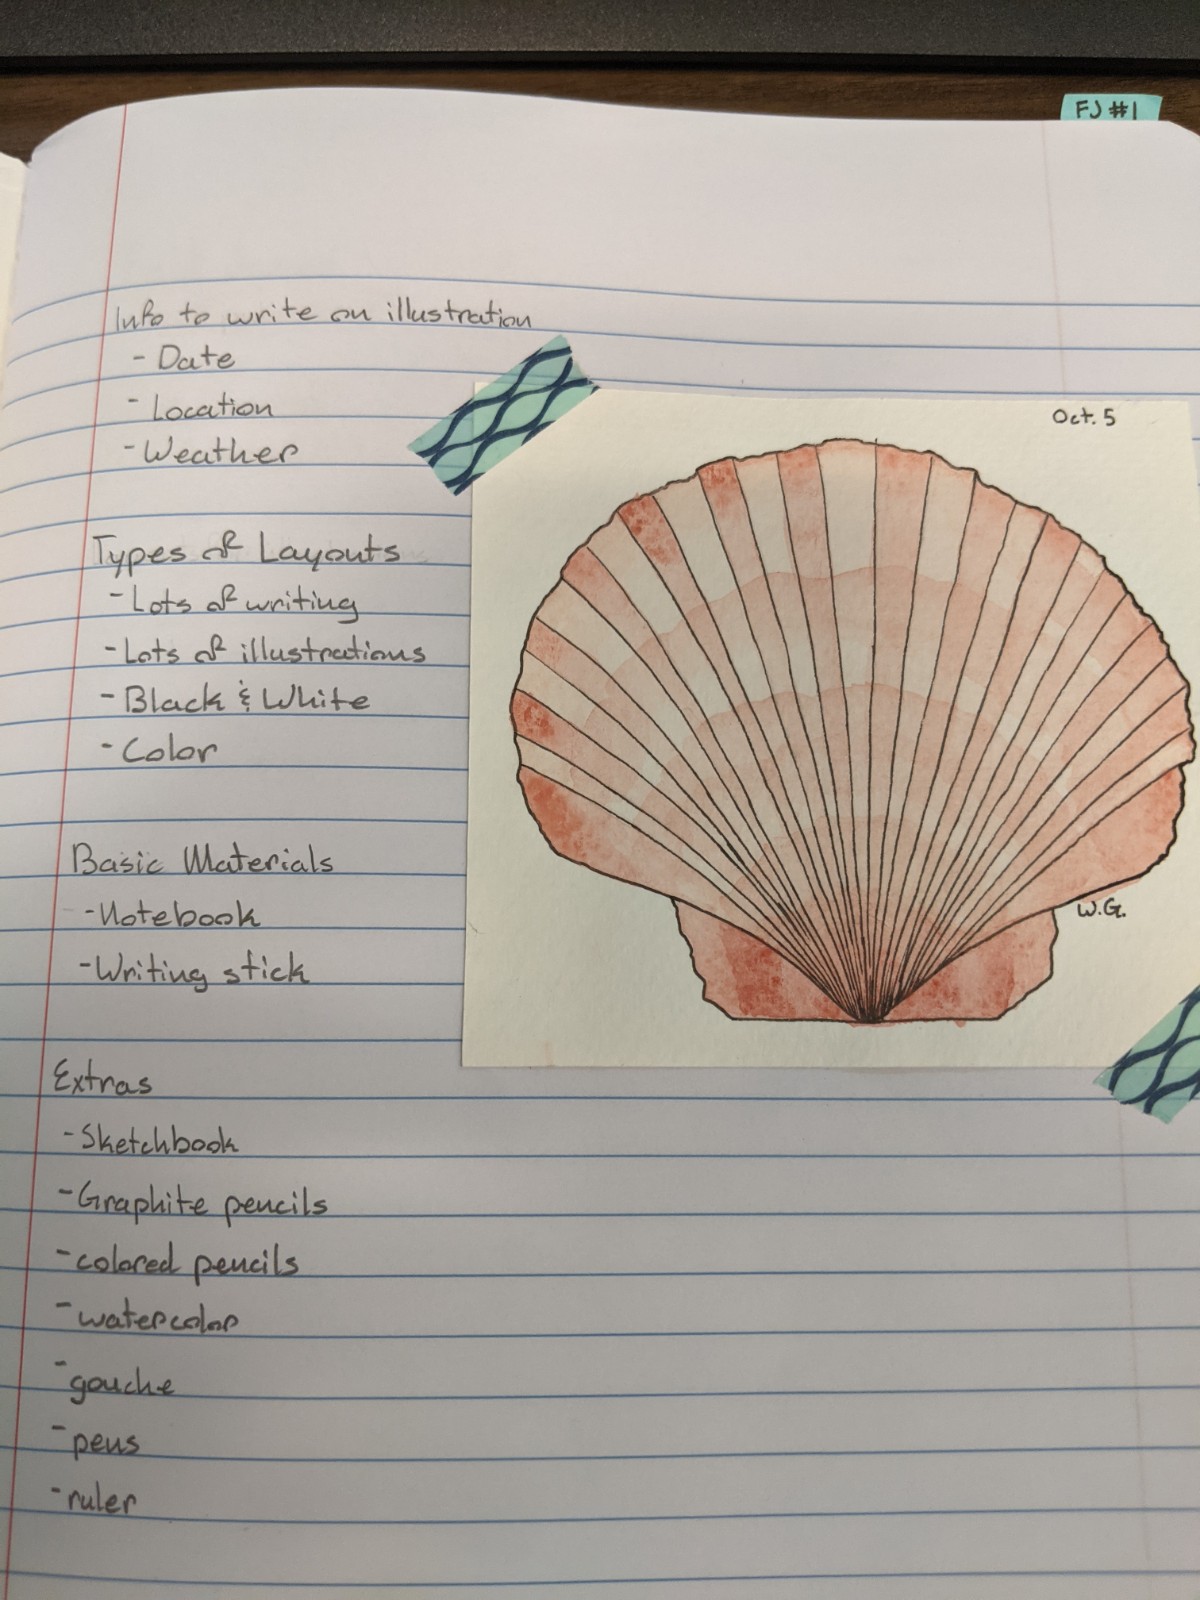 FJ #1
Info to write on illustration
- Date
- Location
- Weather
Types of Layouts
- Lots of writing
- Lots of illustrations
- Black & White
- Color
Basic Materials
- Notebook
- Writing stick
Extras
- Sketchbook
- Graphite pencils
- colored pencils
- watercolor
- gouche
- pens
- ruler
Oct. 5
W.G.